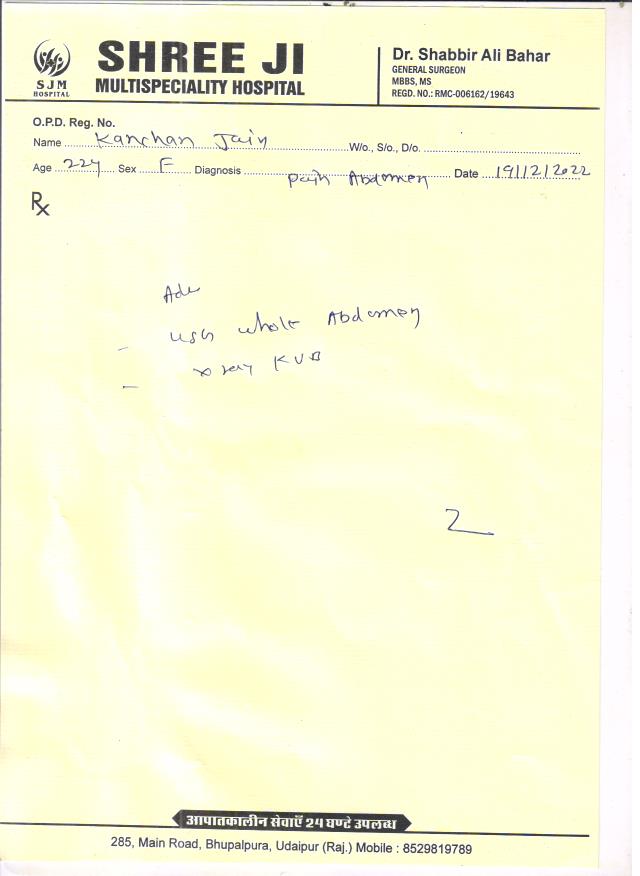 SJM
HOSPITAL
SHREE JI
MULTISPECIALITY HOSPITAL
Dr. Shabbir Ali Bahar
GENERAL SURGEON
MBBS, MS
REGD. NO.: RMC-006162/19643
O.P.D. Reg. No.
Name Kanchan Jain W/o., S/o., D/o.
Age 22y Sex F Diagnosis Pain Abdomen Date 19/12/2022
Rx
Adv
USG whole Abdomen
x ray KUB
आपातकालीन सेवाएँ 24 घण्टे उपलब्ध
285, Main Road, Bhupalpura, Udaipur (Raj.) Mobile : 8529819789